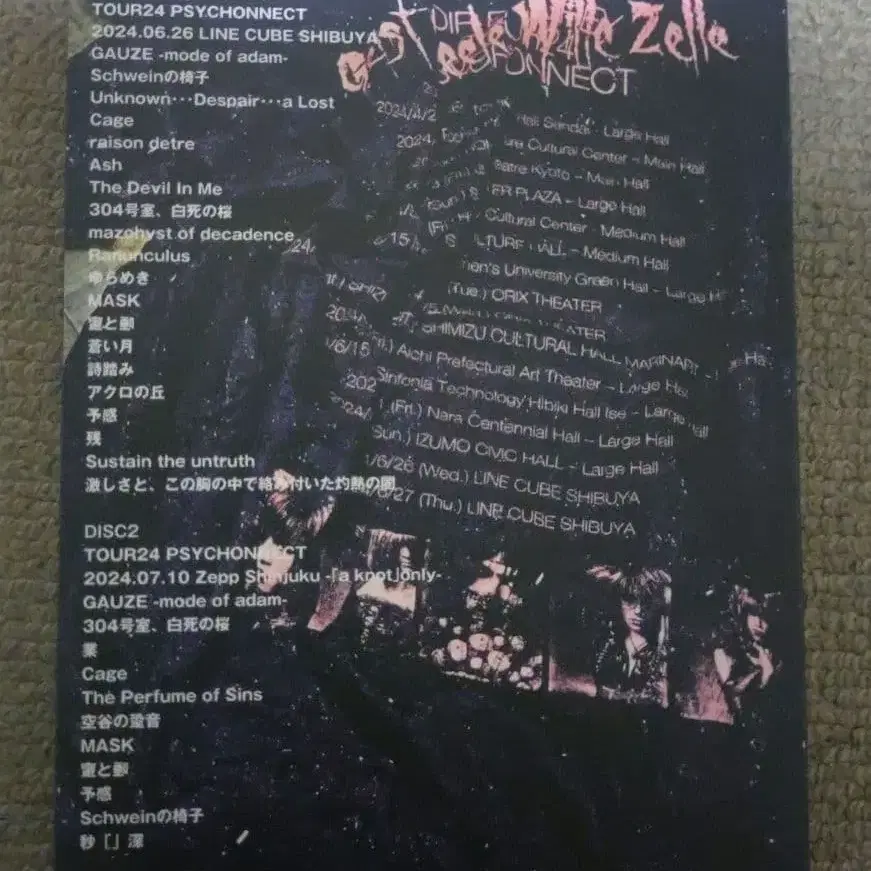 TOUR24 PSYCHONNECT
2024.06.26 LINE CUBE SHIBUYA
GAUZE -mode of adam-
Schweinの椅子
Unknown…Despair…a Lost
Cage
raison detre
Ash
The Devil In Me
304号室、白死の桜
mazohyst of decadence
Ranunculus
ゆらめき
MASK
蜜と唾
蒼い月
詩踏み
アクロの丘
予感
残
Sustain the untruth
激しさと、この胸の中で絡み付いた灼熱の闇
DISC2
TOUR24 PSYCHONNECT
2024.07.10 Zepp Shinjuku -「a knot」only-
GAUZE -mode of adam-
304号室、白死の桜
業
Cage
The Perfume of Sins
空谷の跫音
MASK
蜜と唾
予感
Schweinの椅子
秒「」深
Zelle
2024/4/2
Hall Sendai - Large Hall
2024. Cultural Center - Main Hall
Kyoto - Main Hall
PLAZA - Large Hall
Cultural Center Medium Hall
HALL - Medium Hall
University Green Hall - Large
(Tue.) ORIX THEATER
SHIMIZU CULTURAL HALL MARINART -
/6/15 Aichi Prefectural Art Theater - Large
Sinfonia Technology Hibiki Hall Ise - Large Hall
(Fri.) Nara Centennial Hall - Large Hall
Sun.) IZUMO CIVIC HALL - Large Hall
/6/26 (Wed.) LINE CUBE SHIBUYA
/27 (Thu.) LINE CUBE SHIBUYA